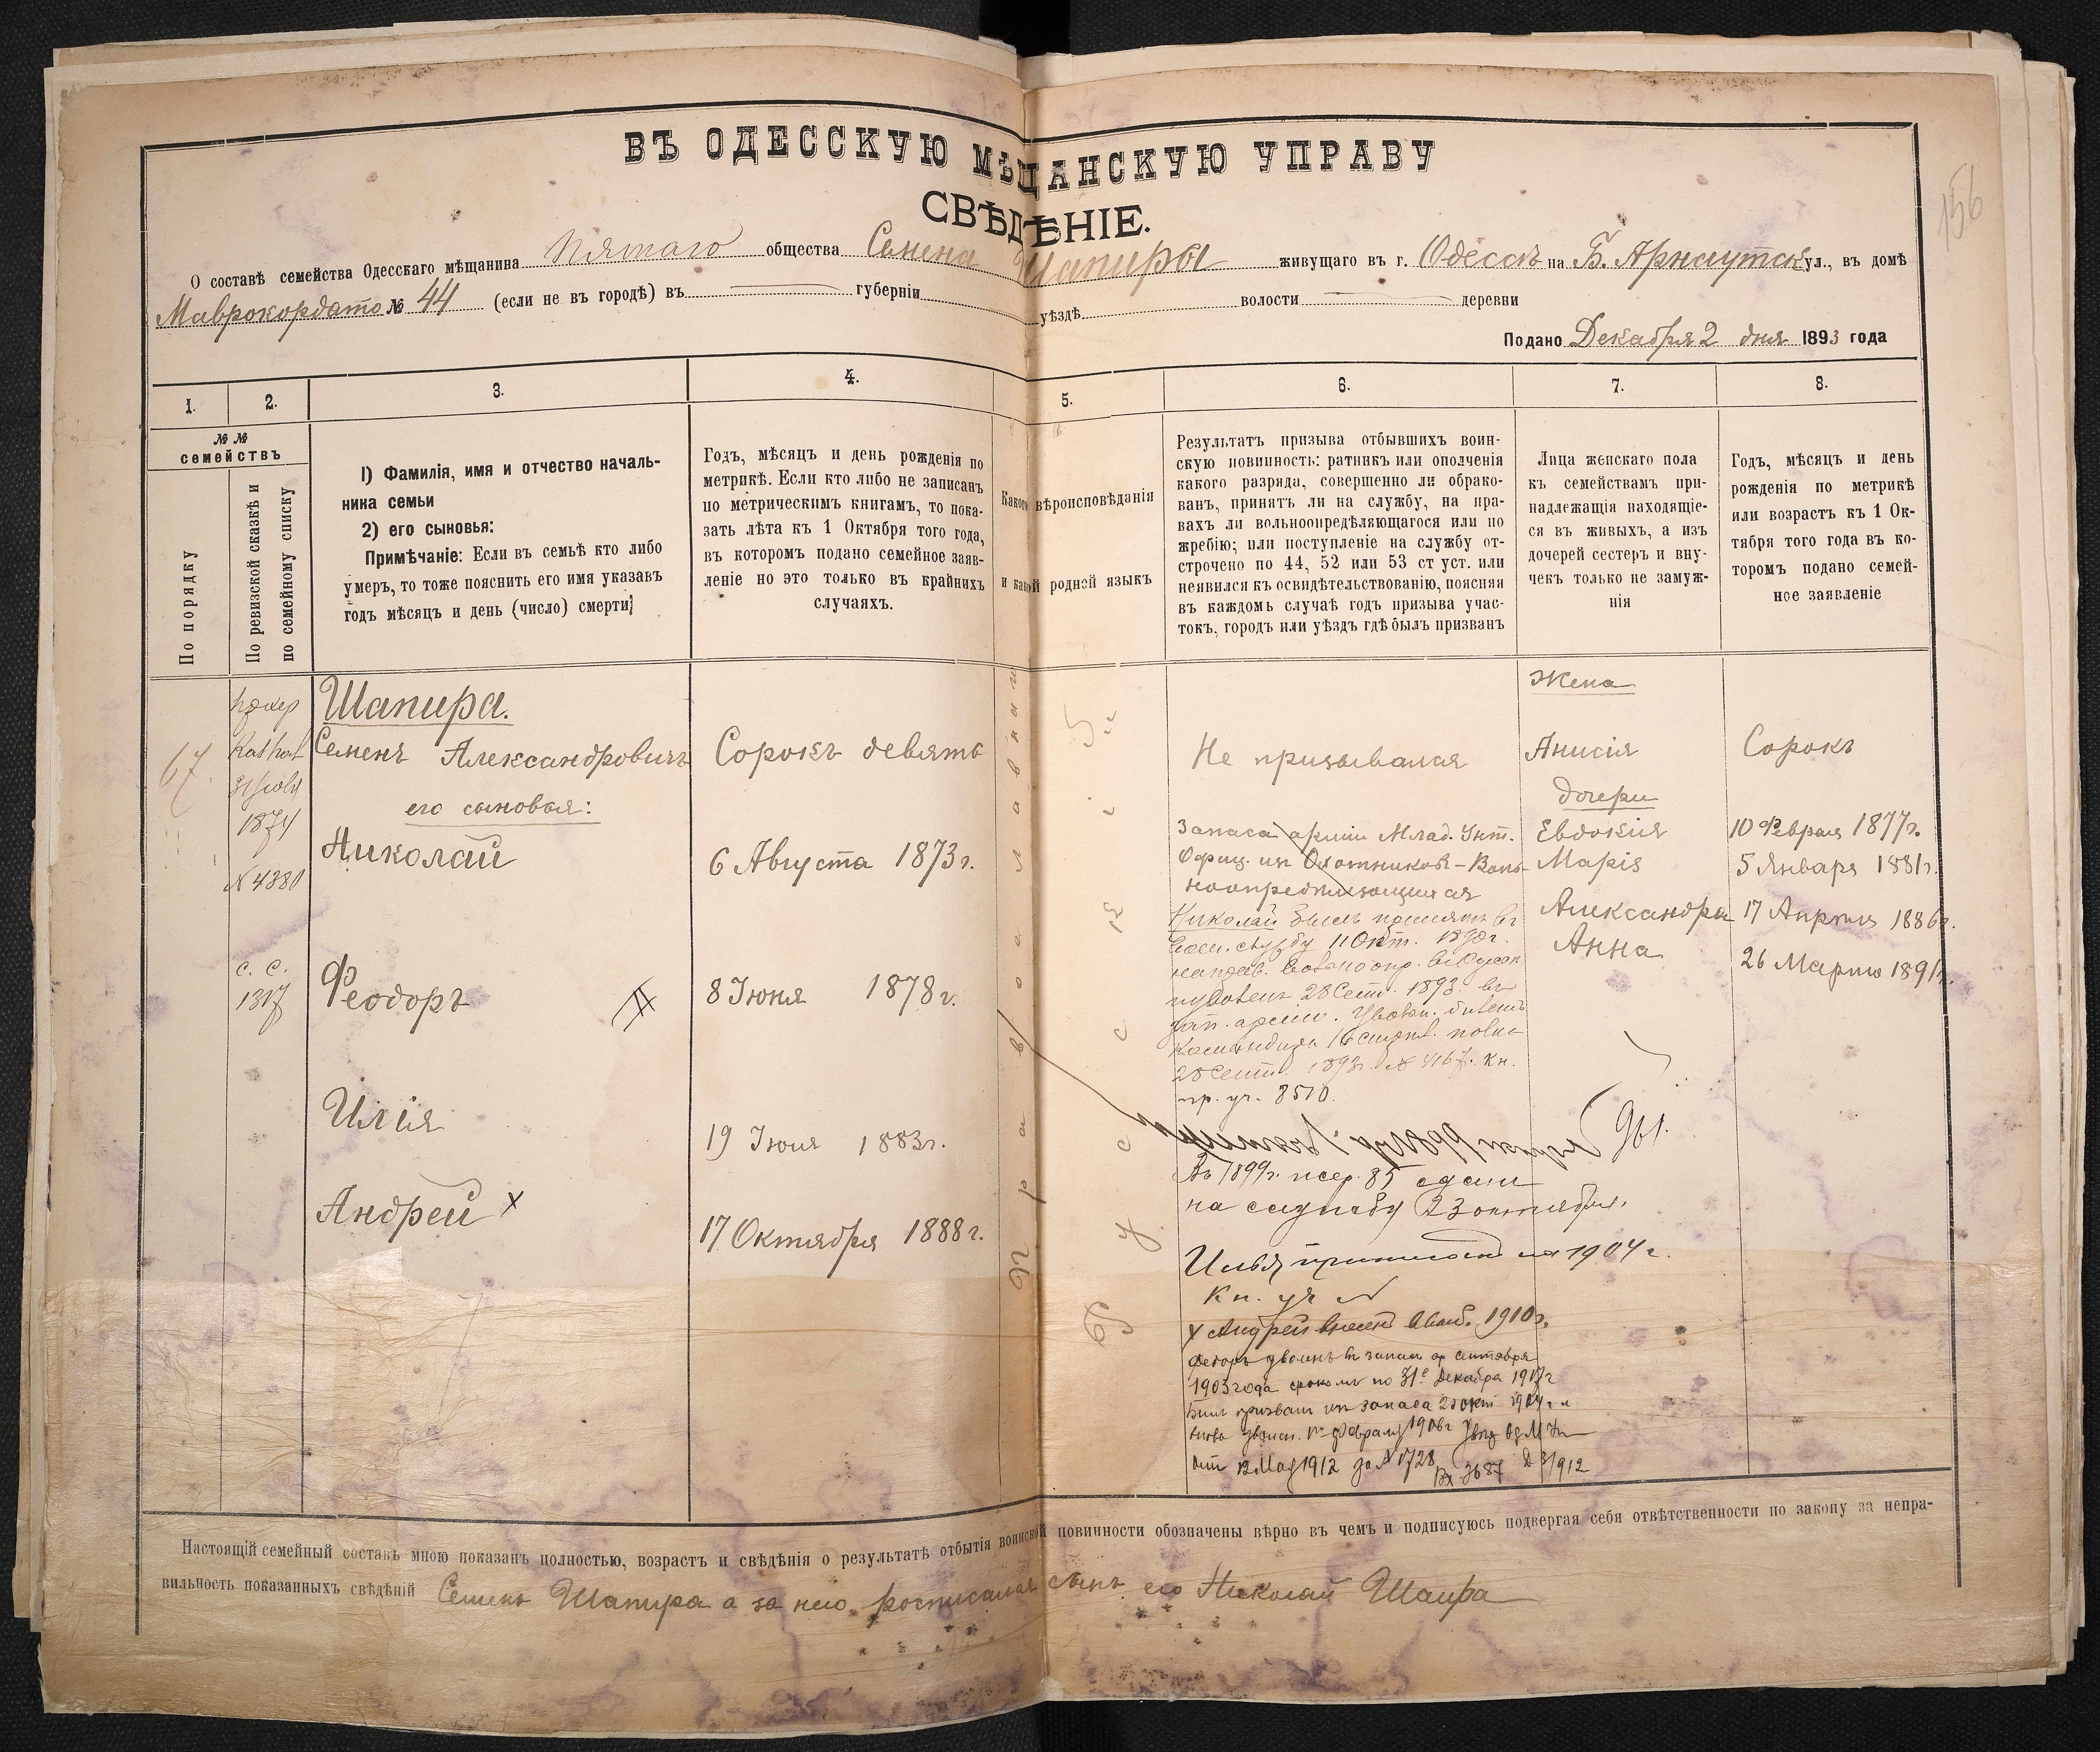 156
ВЪ ОДЕССКУЮ МѢЩАНСКУЮ УПРАВУ
СВѢДѢНІЕ.
О составѣ семейства Одесскаго мѣщанина Пятаго общества Семена Шапиры живущаго въ г. Одессѣ на Б. Арнаутск ул., въ домѣ
Маврокордато № 44 (если не въ городѣ) въ губерніи уѣздѣ волости деревни
Подано Декабря 2 дня 1893 года
1. 2. 3. 4. 5. 6. 7. 8.
№№ семействъ
По порядку
По ревизской сказкѣ и
по семейному списку
1) Фамилія, имя и отчество началь-
ника семьи
2) его сыновья:
Примѣчаніе: Если въ семьѣ кто либо
умеръ, то тоже пояснить его имя указавъ
годъ мѣсяцъ и день (число) смерти;
Годъ, мѣсяцъ и день рожденія по
метрикѣ. Если кто либо не записанъ
по метрическимъ книгамъ, то пока-
зать лѣта къ 1 Октября того года,
въ которомъ подано семейное заяв-
леніе но это только въ крайнихъ
случаяхъ.
Какого вѣроисповѣданія
и какой родной языкъ
Результатъ призыва отбывшихъ воин-
скую повинность: ратникъ или ополченія
какого разряда, совершенно ли обрако-
ванъ, принятъ ли на службу, на пра-
вахъ ли вольноопредѣляющагося или по
жребію; или поступленіе на службу от-
строчено по 44, 52 или 53 ст уст. или
неявился къ освидѣтельствованію, поясняя
въ каждомъ случаѣ годъ призыва учас-
токъ, городъ или уѣздъ гдѣ былъ призванъ
Лица женскаго пола
къ семействамъ при-
надлежащія находящіе-
ся въ живыхъ, а изъ
дочерей сестеръ и вну-
чекъ только не замуж-
нія
Годъ, мѣсяцъ и день
рожденія по метрикѣ
или возрастъ къ 1 Ок-
тября того года въ ко-
торомъ подано семей-
ное заявленіе
67
1874
№ 4380
Шапира.
Семенъ Александровичъ
Сорокъ девять
Православнаи
Русскій
Не призывался
Жена
Анисія
Сорокъ
его сыновья:
Николай
6 Августа 1873 г.
Запаса арміи Млад. Унт.
Офиц. изъ Охотниковъ-Воль-
ноопредѣляющихся
Николай былъ принятъ въ
службу 11 Окт. 1890 г.
28 Сент. 1893. въ
зап. арміи. Уволн. билетъ
Командира 16 стрѣлк. полка
28 Сент. 1893 г. № 4167. кн.
пр. уч. 8510.
дочери
Евдокія
10 Февраля 1877 г.
Марія
5 Января 1881 г.
Александра
17 Апрѣля 1886 г.
Анна
26 Марта 1891 г.
с. с.
1317
Феодоръ
8 Іюня 1878 г.
Илія
19 Іюля 1883 г.
Андрей х
17 Октября 1888 г.
961.
Въ 1899 г. 85 сданъ
на службу 23 октября.
Илья 1904 г.
Кн. уч №
х Андрей 1910 г.
Федоръ уволенъ въ запасъ ар сентября
1903 года срокомъ по 31е Декабря 1917 г
Былъ призванъ изъ запаса 1904 г и
Февраля 1906 г
12 Мая 1912 за № 1728 Вх 3687
Настоящій семейный составъ мною показанъ полностью, возрастъ и свѣдѣнія о результатѣ отбытія воинской повинности обозначены вѣрно въ чемъ и подписуюсь подвергая себя отвѣтственности по закону за непра-
вильность показанныхъ свѣдѣній Семенъ Шапира а за него росписался сынъ его Николай Шапира